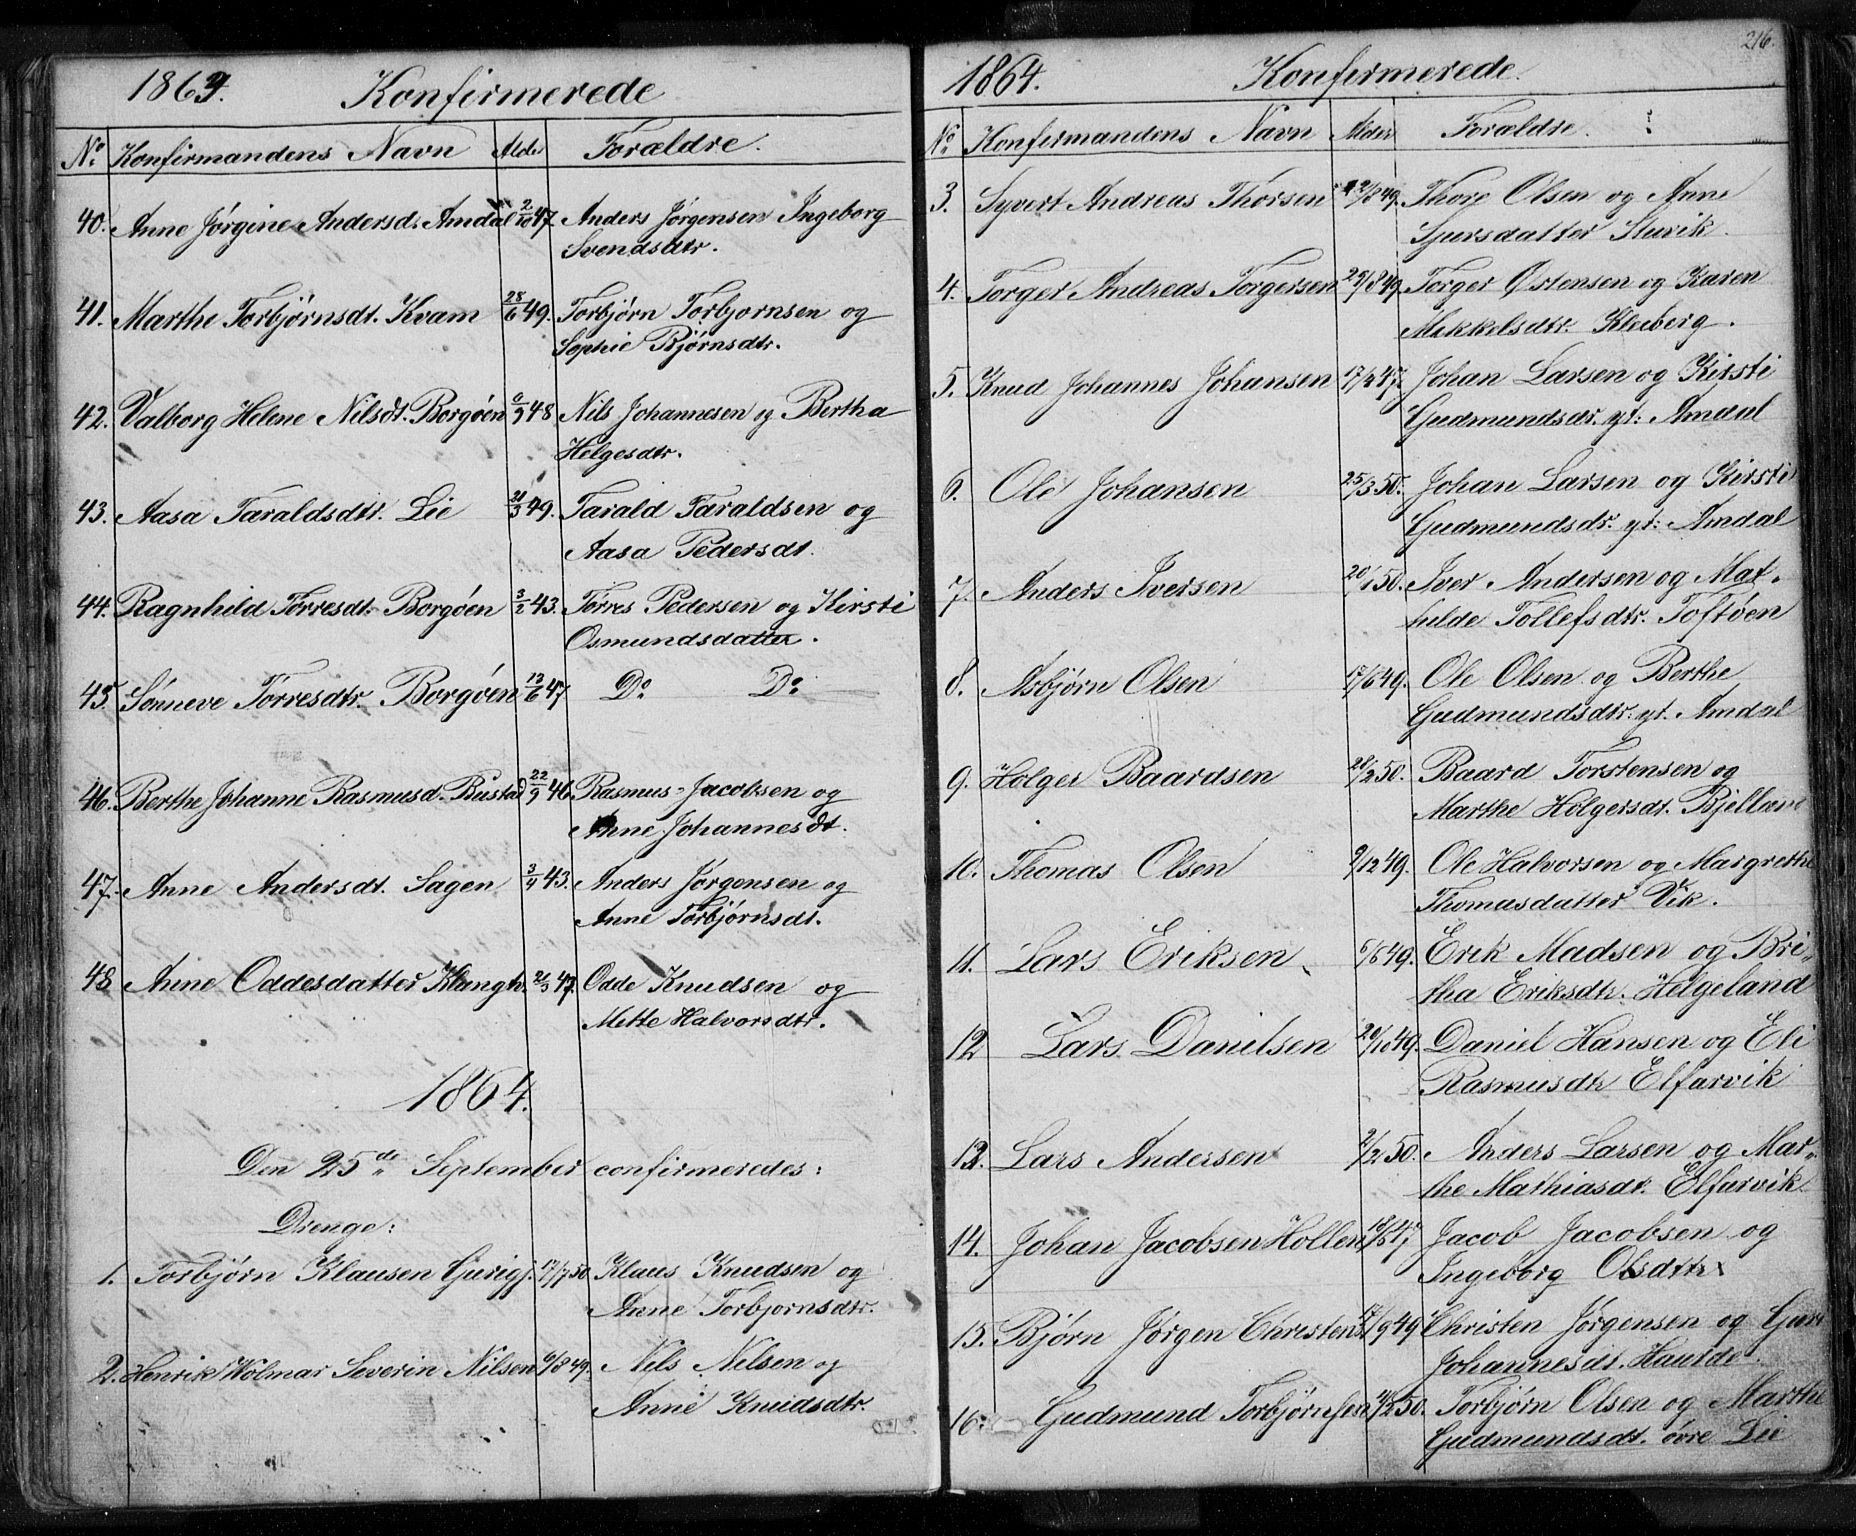 1864. Konfirmerede
No. Konfirmandens Navn Alder Forældre.
40. Anne Jørgine Andersd. Amdal 2/10 47. Anders Jørgensen Ingeborg
Svendsdtr.
41. Marthe Torbjørnsdt. Kvam 28/6 49. Torbjørn Torbjornsen og
Sophie Bjørnsdtr.
42. Valborg Helene Nilsdt. Borgøen 6/9 48 Nils Johannesen og Bertha
Helgesdtr.
43. Aasa Taraldsdtr. Lie 21/3 49. Tarald Taraldsen og
Aasa Pedersdt.
44. Ragnhild Torresdt. Borgøen 3/2 43. Torres Pedersen og Kirsti
Osmundsdatter.
45. Sønneve Torresdtr. Borgøen 13/6 47 Do Do
46. Berthe Johanne Rasmusd. Bustad 22/9 46. Rasmus Jacobsen og
Anne Johannesdt.
47. Anne Andersdt. Sagen 3/4 43. Anders Jørgensen og
Anne Torbjørnsdt.
48 Anne Oddesdatter 21/3 47. Odde Knudsen og
Mette Halvorsdtr.
1864.
Den 25de September confirmeredes:
Drenge:
1. Torbjørn Klausen 17/7 50 Klaus Knudsen og
Anne Torbjornsdtr.
2. Henrik Wolmar Severin Nilsen 6/8 49. Nels Nelsen og
Anne Knudsdtr.
216.
1864. Konfirmerede.
No. Konfirmandens Navn Alder Forældre.
3. Syvert Andreas Thorsen 49. Thore Olsen og Anne
Sjursdatter
4. Torger Andreas Torgersen 29/8 49 Torger Østensen og Karen
Mekkelsdtr. Kleeberg.
5. Knud Johannes Johansen 47. Johan Larsen og Kirsti
Gudmundsdr. yt: Amdal
6. Ole Johansen 25/3 50. Johan Larsen og Kirsti
Gudmundsdr. yt: Amdal
7. Anders Iversen 20/1 50. Iver Andersen og Mat-
hilde Tollefsdtr. Toftøen
8. Asbjørn Olsen 17/6 49. Ole Olsen og Berthe
Gudmundsdtr. yt. Amdal
9. Holger Baardsen 20/2 50. Baard Torstensen og
Marthe Holgersdt.
10. Thomas Olsen 2/12 49. Ole Halvorsen og Margrethe
Thomasdatter Vik.
11. Lars Eriksen 6/8 49. Erik Madsen og Bri-
tha Eriksdtr. Helgeland
12 Lars Danilsen 20/10 49. Daniel Hansen og Eli
Rasmusdtr Elfarvik
13. Lars Andersen 2/2 50. Anders Larsen og Mar-
the Mathiasdt. Elfarvik
14. Johan Jacobsen Hollen 18/5 47 Jacob Jacobsen og
Ingeborg Olsdtr
15. Bjørn Jørgen Christens. 17/9 49 Christen Jørgensen og Guri
Johannesdt.
16. Gudmund Torbjørnsen 50. Torbjørn Olsen og Marthe
Gudmundsdt. øvre Lie